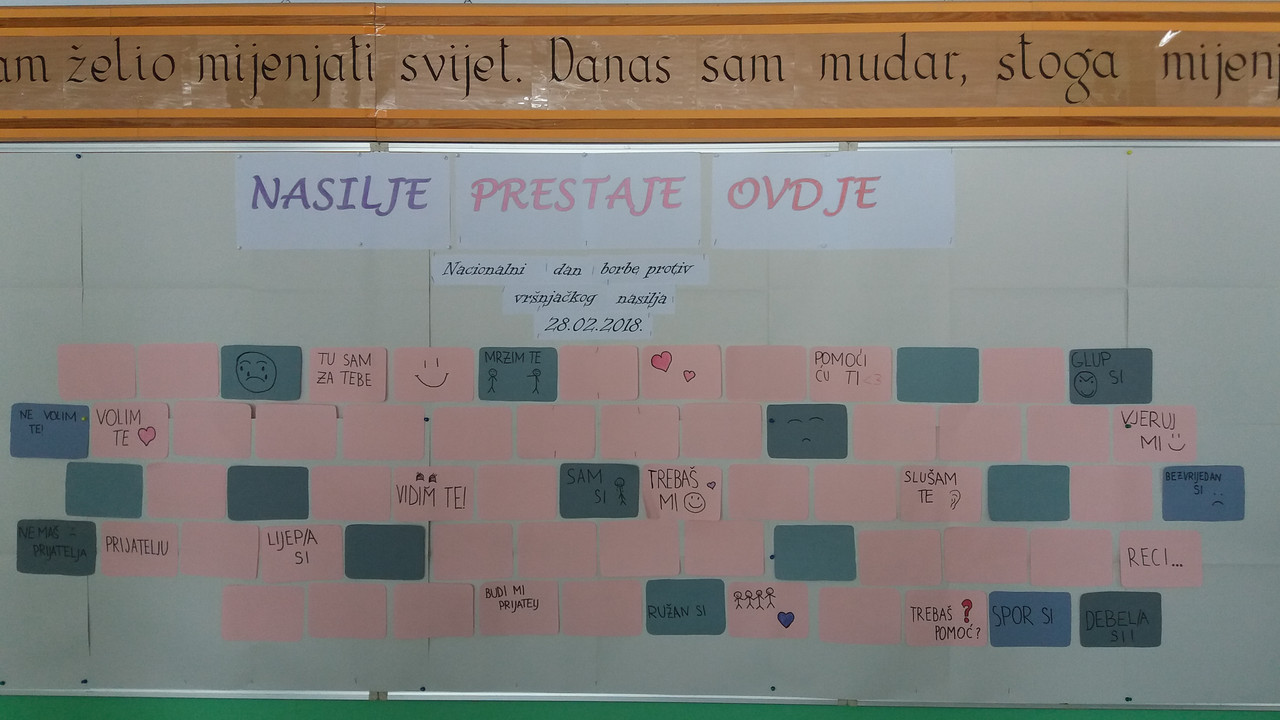 am želio mijenjati svijet. Danas sam mudar, stoga mijenj
NASILJE PRESTAJE OVDJE
Nacionalni dan borbe protiv
vršnjačkog nasilja
28.02.2018.
TU SAM
ZA TEBE
MRZIM TE
POMOĆI
ĆU TI <3
GLUP
SI
NE VOLIM
TE!
VOLIM
TE
VJERUJ
MI
VIDIM TE!
SAM
SI
TREBAŠ
MI
SLUŠAM
TE
BEZVRIJEDAN
SI
NEMAŠ
PRIJATELJA
PRIJATELJU
LIJEP/A
SI
RECI...
BUDI MI
PRIJATELJ
RUŽAN SI
TREBAŠ
POMOĆ?
SPOR SI
DEBEL/A
SI!